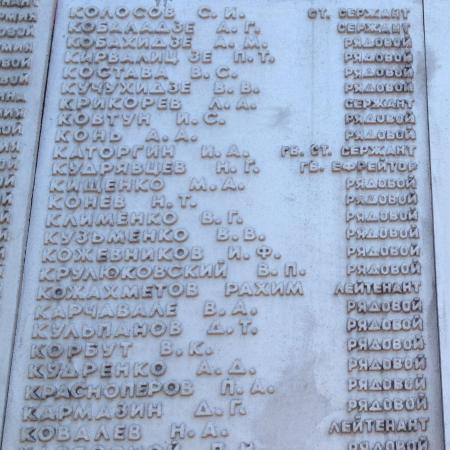 КОЛОСОВ С. И. СТ. СЕРЖАНТ
КОБАЛАДЗЕ А. Г. СЕРЖАНТ
КОБАХИДЗЕ А. М. РЯДОВОЙ
КИРВАЛИДЗЕ П. Т. РЯДОВОЙ
КОСТАВА В. С. РЯДОВОЙ
КУЧУХИДЗЕ В. В. РЯДОВОЙ
КРИКОРЕВ Л. А. СЕРЖАНТ
КОВТУН И. С. РЯДОВОЙ
КОНЬ А. А. РЯДОВОЙ
КАТОРГИН И. А. ГВ. СТ. СЕРЖАНТ
КУДРЯВЦЕВ Н. Г. ГВ. ЕФРЕЙТОР
КИЩЕНКО М. А. РЯДОВОЙ
КОНЕВ Н. Т. РЯДОВОЙ
КЛИМЕНКО В. Г. РЯДОВОЙ
КУЗЬМЕНКО В. В. РЯДОВОЙ
КОЖЕВНИКОВ И. Ф. РЯДОВОЙ
КРУЛЮКОВСКИЙ В. П. РЯДОВОЙ
КОЖАХМЕТОВ РАХИМ ЛЕЙТЕНАНТ
КАРЧАВАЛЕ В. А. РЯДОВОЙ
КУЛЬПАНОВ Д. Т. РЯДОВОЙ
КОРБУТ В. К. РЯДОВОЙ
КУДРЕНКО А. Д. РЯДОВОЙ
КРАСНОПЕРОВ П. А. РЯДОВОЙ
КАРМАЗИН Д. Г. РЯДОВОЙ
КОВАЛЕВ Н. А. ЛЕЙТЕНАНТ
РЯДОВОЙ